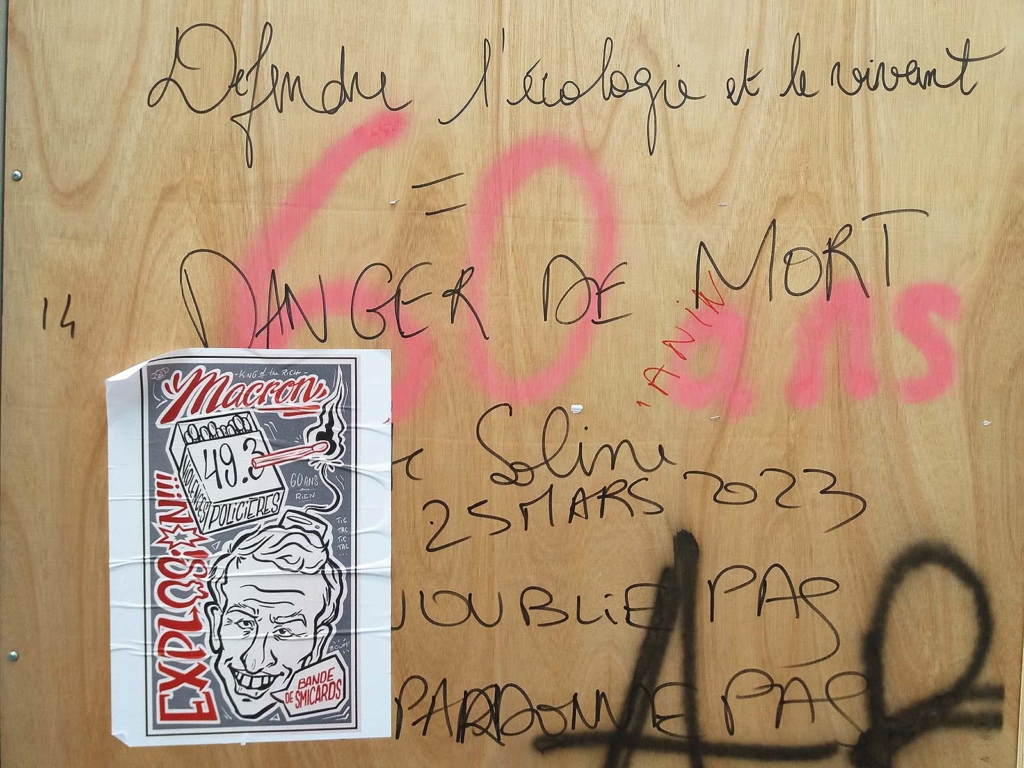 Défendre l'écologie et le vivant
=
DANGER DE MORT
60 ans
14
'ANIN
Soline
25 MARS 2023
OUBLiE PAS
PARDONNE PAS
KING of the RICH
"Macron"
49.3
VIOLENCES POLICIÈRES
60 ANS
RIEN
TIC
TAC
TIC
TAC
EXPLOSION!!!
BANDE
DE SMICARDS